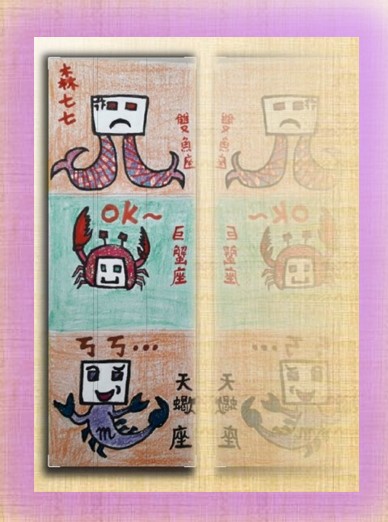 森七七
雙魚座
OK~
巨蟹座
ㄎㄎ...
天蠍座
m